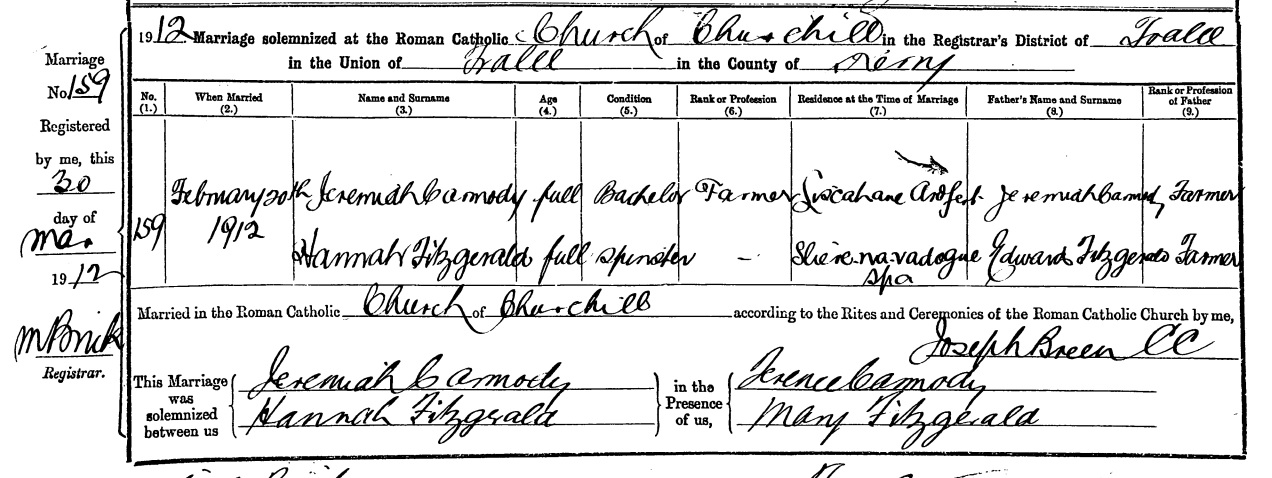 1912 Marriage solemnized at the Roman Catholic Church of Churchill in the Registrar's District of Tralee
in the Union of Tralee in the County of Kerry
Marriage
No. 159
Registered
by me, this
30
day of
Mar.
1912
M Brick
Registrar.
No. When Married Name and Surname Age Condition Rank or Profession Residence at the Time of Marriage Father's Name and Surname Rank or Profession of Father
(1.) (2.) (3.) (4.) (5.) (6.) (7.) (8.) (9.)
159 February 20th 1912 Jeremiah Carmody full Bachelor Farmer Liscahane Ardfert Jeremiah Carmody Farmer
Hannah Fitzgerald full Spinster - Slieve.na.vadogue Spa Edward Fitzgerald Farmer
Married in the Roman Catholic Church of Churchill according to the Rites and Ceremonies of the Roman Catholic Church by me,
Joseph Breen CC
This Marriage was solemnized between us
Jeremiah Carmody
Hannah Fitzgerald
in the Presence of us,
Terence Carmody
Mary Fitzgerald